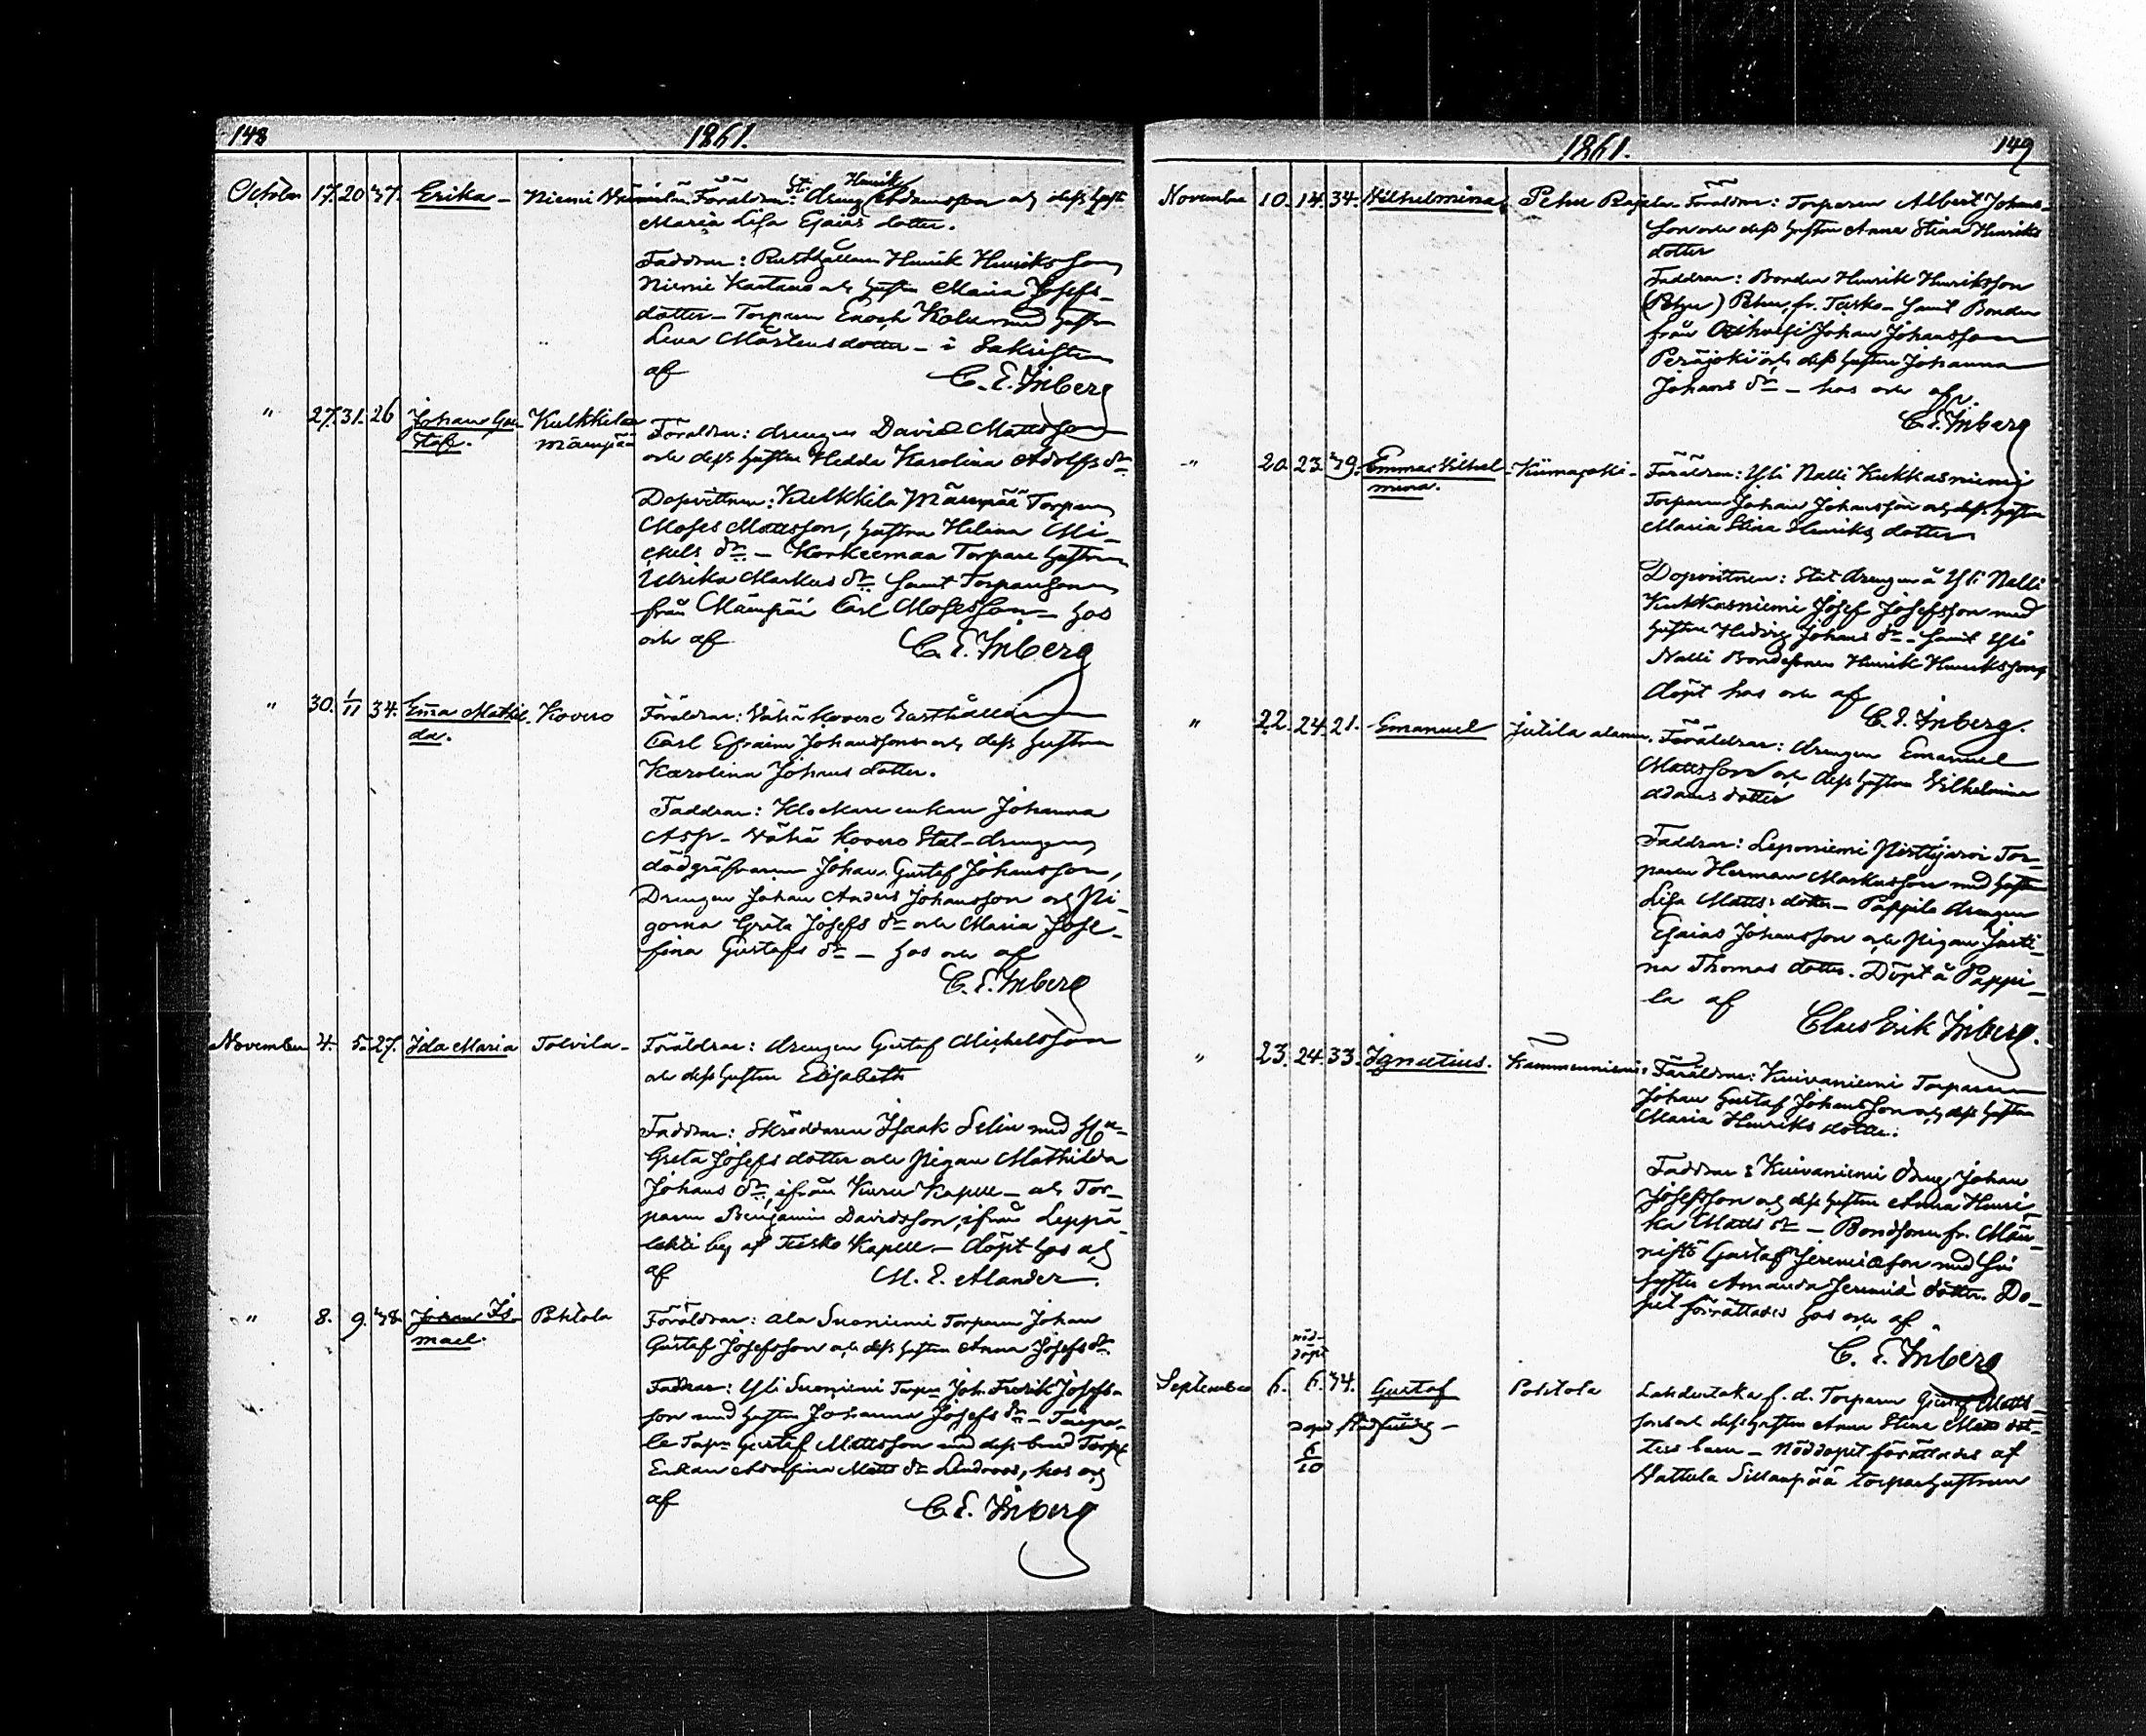 148
1861.
October 17. 20 37. Erika - Niemi Föräldrar: St. dreng Henrik Adamsson och dess hust.
Maria Lisa Esaias dotter.
Faddrar: Rusthållaren Henrik Henriksson
Niemi Kartano och hustru Maria Josefs-
dotter - Torparen Enoch Kolu med hustru
Lena Mårtensdotter - i Sakristian
af C. E. Inberg
" 27. 31. 26 Johan Gu- Kulkkila
staf. Mämpää
Föräldrar: drengen David Mattsson
och dess hustru Hedda Karolina Adolfs dr
Dopvittnen: Kulkkila Mämpää Torparen
Moses Mattsson, hustru Helena Mi-
chels dr - Korkeemaa Torpare hustrun
Ulrika Markus dr samt Torparsonen
från Mämpää Carl Mosesson - hos
och af C. E. Inberg
" 30. 1/11 34. Ema Mathil- Kovero
da.
Föräldrar: Vähä Kovero Rusthållaren
Carl Efraim Johansson och dess hustru
Karolina Johans dotter.
Faddrar: Klockare enkan Johanna
Asp - Vähä Kovero Stat-drengen
dödgräfvaren Johan Gustaf Johansson,
Drengen Johan Anders Johansson och Pi-
gorna Greta Josefs dr och Maria Jose-
fina Gustafs dr - hos och af
C. E. Inberg
November 4. 5. 27. Ida Maria Tolvila -
Föräldrar: drengen Gustaf Michelsson
och dess hustru Elisabeth
Faddrar: Skräddaren Isaak Selin med
Greta Josefs dotter och Pigan Mathilda
Johans dr, ifrån Kuru Kapell - och Tor-
paren Benjamin Davidsson, ifrån Leppä-
lahti by af Teisko Kapell - döpt hos och
af M. E. Alander.
" 8. 9. 38. Johan Is- Pohtola
mael.
Föräldrar: Ala Suoniemi Torparen Johan
Gustaf Josefsson och dess hustru Anna Josefs dr.
Faddrar: Yli Suoniemi Torpn Joh. Fredrik Josefs-
son med hustru Johanna Josefs dr -
Gustaf Mattsson med dess
Enkan Adolfina Matts dr Lindroos, hos och
af C. E. Inberg
1861.
149
November 10. 14. 34. Wilhelmina, Pehu Rajala - Föräldrar: Torparen Albert Johans-
son och dess hustru Anna Stina Henriks
dotter
Faddrar: Bonden Henrik Henriksson
Pehu, fr. Teisko - samt Bonden
från Johan Johansson
Peräjoki och dess hustru Johanna
Johans dr - hos och af
C. E. Inberg
-"- 20. 23. 39. Emma Vilhel- Kiimajoki -
mina.
Föräldrar: Yli Nalli Kukkasniemi
Torparen Johan Johansson och dess hustru
Maria Stina Henriks dotter
Dopvittnen: Stat drengen å Yli Nalli
Kukkasniemi Josef Josefsson med
hustru Hedvig Johans dr - samt Yli
Nalli Bondesonen Henrik Henriksson
döpt hos och af
C. E. Inberg.
" 22. 24. 21. Emanuel Jutila
Föräldrar: drengen Emanuel
Mattsson och dess hustru Wilhelmina
Adams dotter
Faddrar: Leponiemi Tor-
paren Herman Markusson med hustru
Lisa Matts dotter - Pappila drengen
Esaias Johansson och Pigan Justi-
na Thomas dotter. Döpt å Pappi-
la af
Claes Erik Inberg.
" 23. 24. 33. Ignatius. Kammenniemi
Föräldrar: Kuivaniemi Torparen
Johan Gustaf Johansson och dess hustru
Maria Henriks dotter.
Faddrar: Kuivaniemi dreng Johan
Josefsson och dess hustru Anna Henri-
ka Matts dr - Bondsonen fr. Män-
nistö Gustaf Jeremiæson med sin
syster Amanda Jeremiæ dotter. Do-
pet förrättades hos och af
C. E. Inberg
nöd-
döpt
September 6. 6. 34. Gustaf Pohtola
dopet stadfästes -
6/10
f. d. Torparen Gustaf Matts-
son och dess hustru Anna Stina Matts dot-
ters barn - Nöddopet förrättades af
Vattula Sillanpää torparhustrun